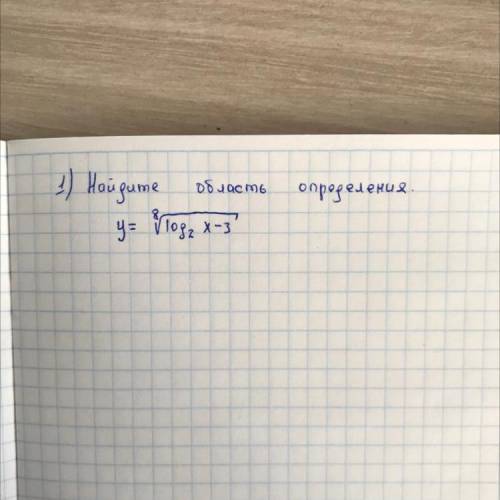 1) Найдите область определения.
y= ⁸√log₂ x-3